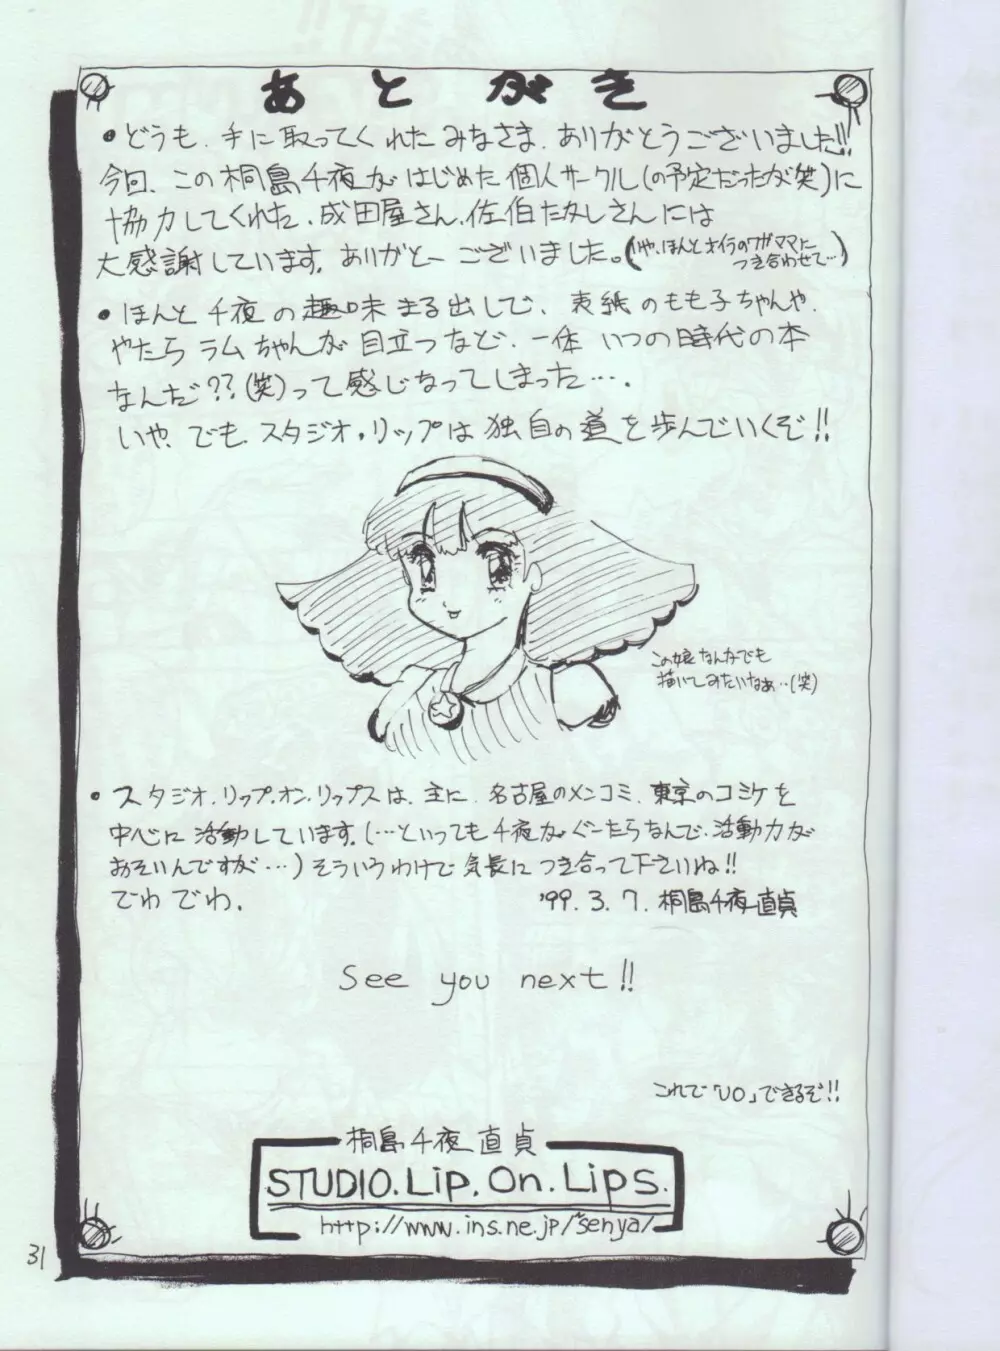 あとがき
・どうも、手に取ってくれたみなさま、ありがとうございました!!
今回、この桐島千夜がはじめた個人サークル(の予定だったが笑)に
協力してくれた、成田屋さん、佐伯たかしさんには
大感謝しています。ありがとーございました。(いや、ほんとオイラのワガママに
つき合わせて…)
・ほんと千夜の趣味まる出しで、表紙のもも子ちゃんや、
やたらラムちゃんが目立つなど、一体いつの時代の本
なんだ??(笑)って感じなってしまった…。
いや、でも、スタジオ・リップは独自の道を歩んでいくぞ!!
この娘なんかでも
描いてみたいなぁ…(笑)
・スタジオ.リップ.オン.リップスは、主に、名古屋のメンコミ、東京のコミケを
中心に活動しています。(…といっても千夜がぐーたらなんで、活動力が
おそいんですが…)そういうわけで気長につき合って下さいね!!
でわでわ。
'99.3.7.桐島千夜直貞
See you next!!
これで「UO」できるぞ!!
桐島千夜直貞
STUDIO.Lip.On.Lips.
http://www.ins.ne.jp/~senya/
31